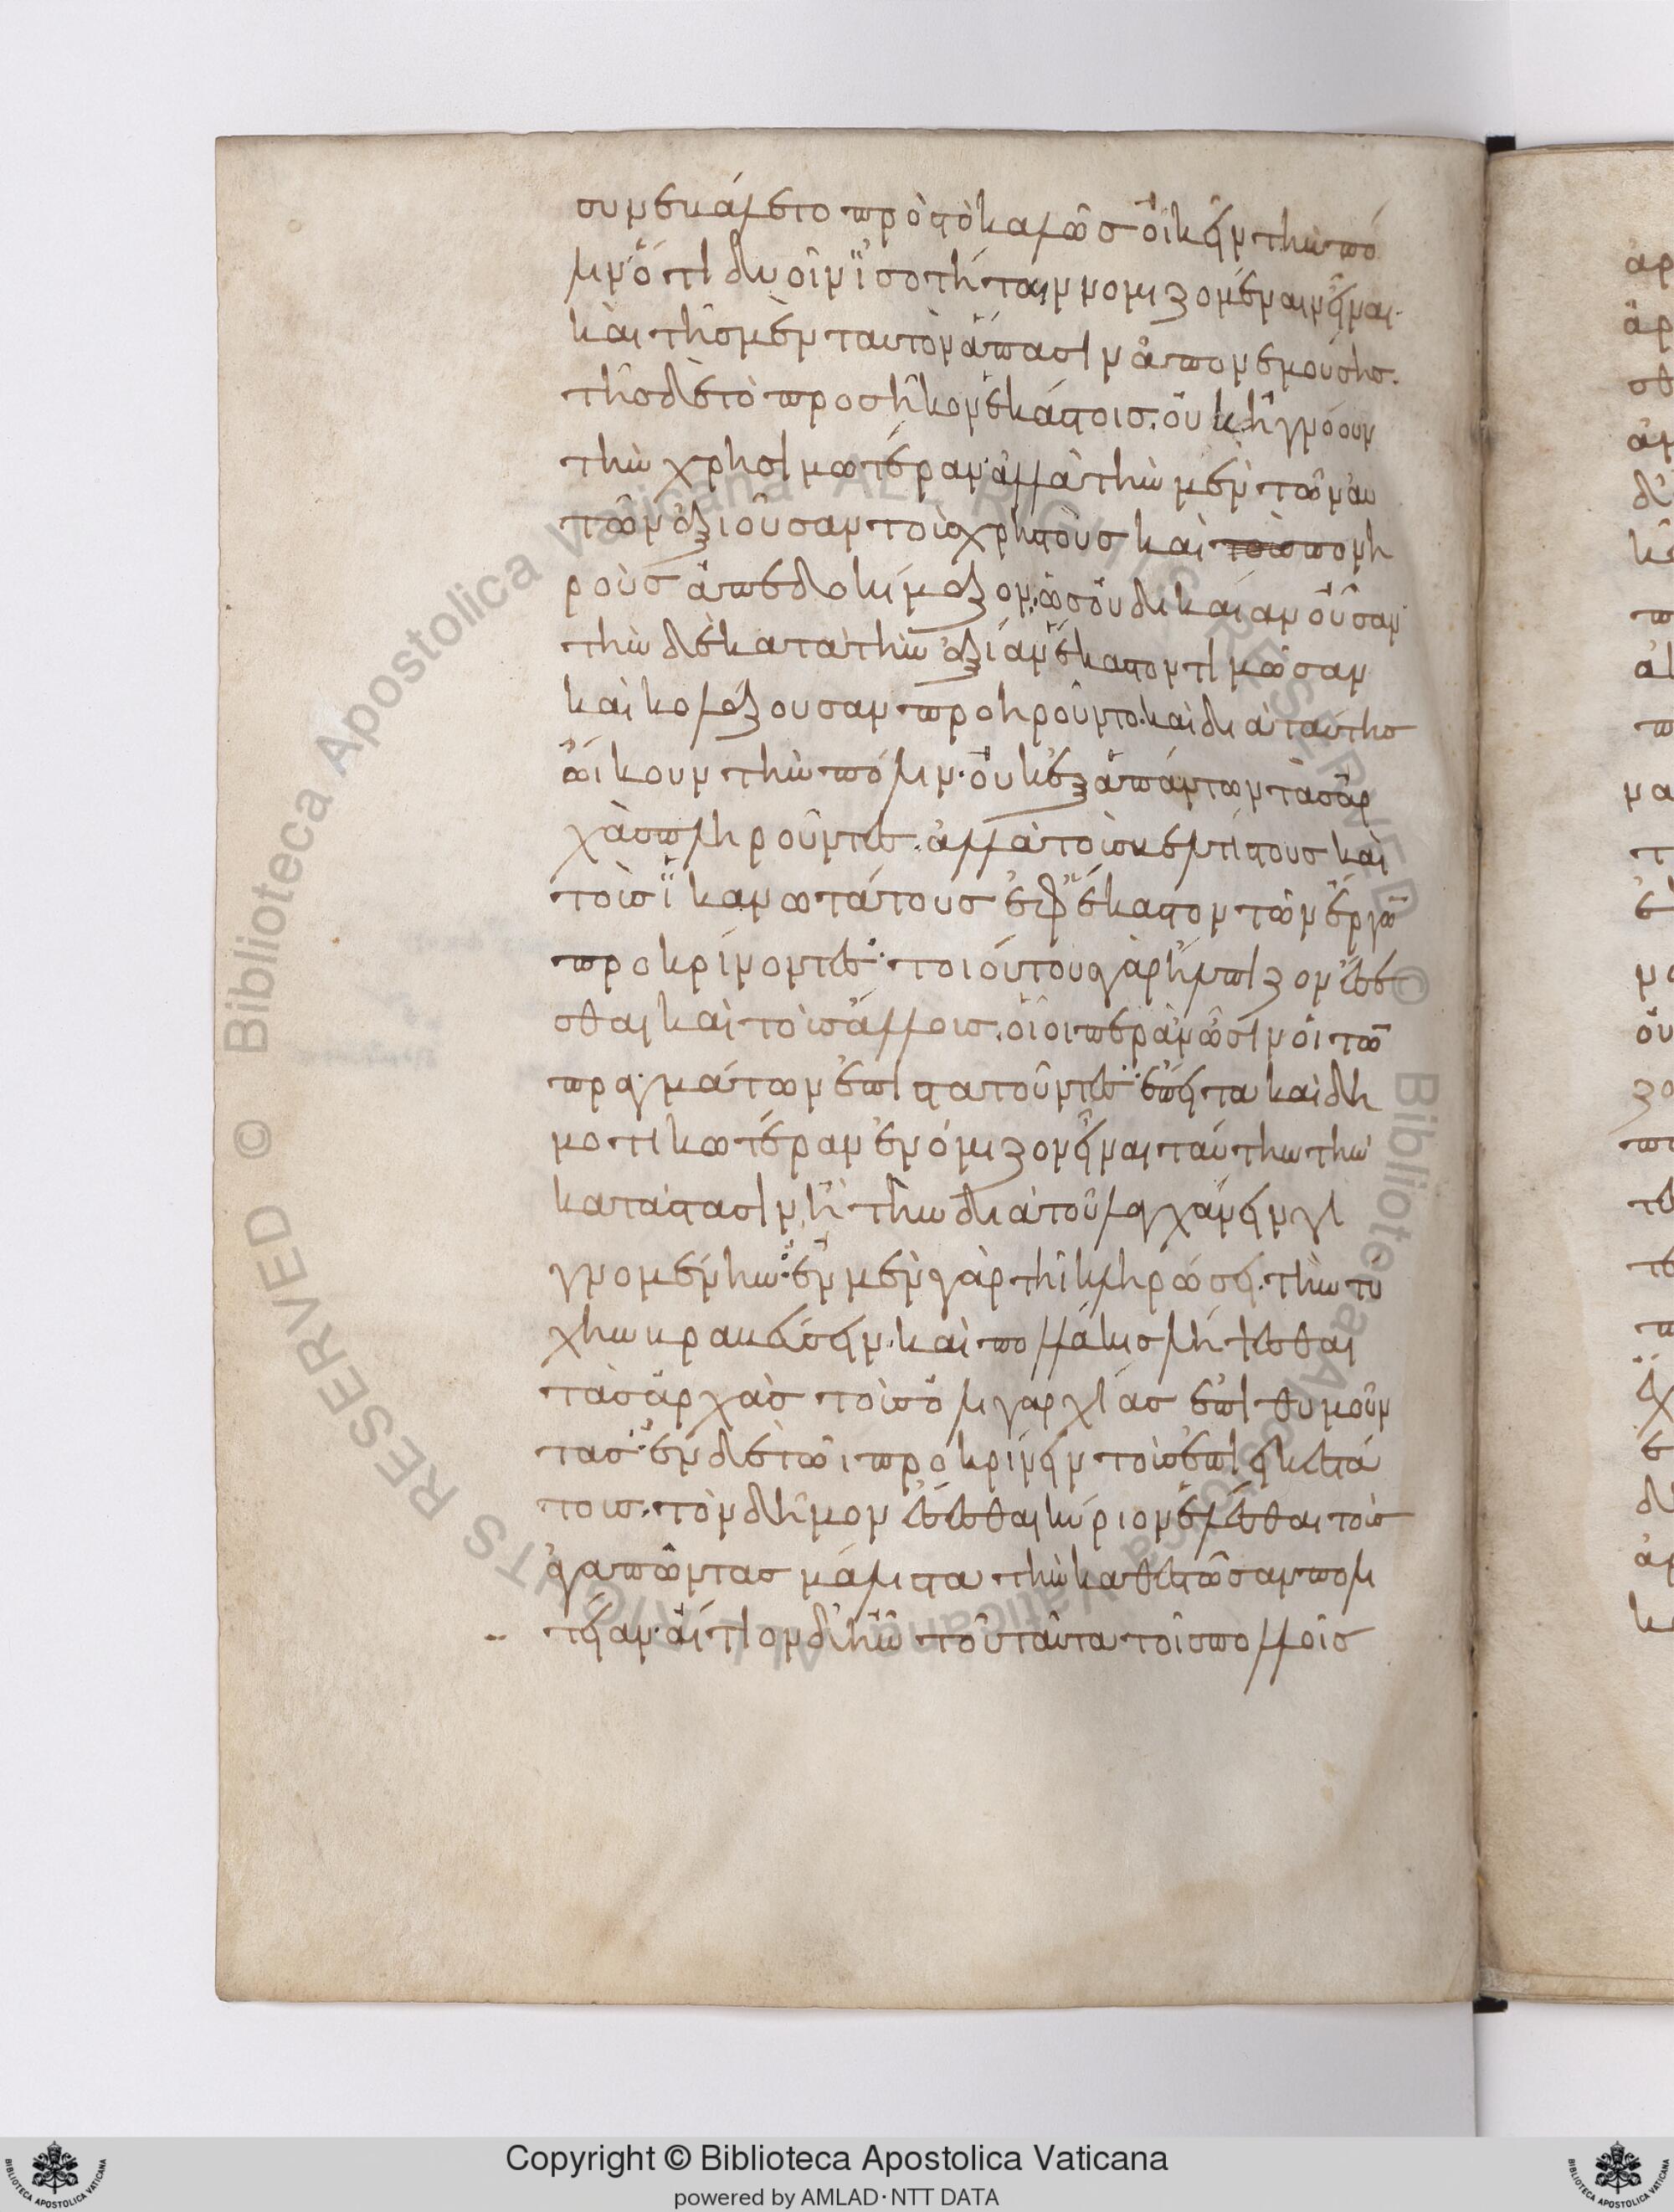 συνεβάλετο πρὸς τὸ καλῶς οἰκεῖν τὴν πό
λιν ὅτι δυοῖν ἰσοτήτοιν νομιζομέναιν εἶναι·
καὶ τῆς μὲν ταυτὸν ἅπασιν ἀπονεμούσης·
τῆς δὲ τὸ προσῆκον ἑκάστοις· οὐκ ἠγνόουν
τὴν χρησιμωτέραν· ἀλλὰ τὴν μὲν τῶν αὐ
τῶν ἀξιοῦσαν τοὺς χρηστοὺς καὶ τοὺς πονη
ροὺς ἀπεδοκίμαζον· ὡς οὐ δικαίαν οὖσαν·
τὴν δὲ κατὰ τὴν ἀξίαν ἕκαστον τιμῶσαν
καὶ κολάζουσαν προηροῦντο· καὶ διὰ ταύτης
ᾤκουν τὴν πόλιν· οὐκ ἐξ ἁπάντων τὰς ἀρ
χὰς πληροῦντες· ἀλλὰ τοὺς βελτίστους καὶ
τοὺς ἱκανωτάτους ἐφ' ἕκαστον τῶν ἔργων
προκρίνοντες· τοιούτους γὰρ ἤλπιζον ἔσε
σθαι καὶ τοὺς ἄλλους· οἷοι περ ἂν ὦσιν οἱ τῶν
πραγμάτων ἐπιστατοῦντες· ἔπειτα καὶ δη
μοτικωτέραν ἐνόμιζον εἶναι ταύτην τὴν
κατάστασιν ἢ τὴν διὰ τοῦ λαγχάνειν γι
γνομένην· ἐν μὲν γὰρ τῇ κληρώσει· τὴν τύ
χην βραβεύσειν· καὶ πολλάκις λήψεσθαι
τὰς ἀρχὰς τοὺς ὀλιγαρχίας ἐπιθυμοῦν
τας· ἐν δὲ τῶι προκρίνειν τοὺς ἐπιεικεστά
τους· τὸν δῆμον ἔσεσθαι κύριον ἑλέσθαι τοὺς
ἀγαπῶντας μάλιστα τὴν καθεστῶσαν πολι
τείαν· αἴτιον δ' ἦν τοῦ ταῦτα τοῖς πολλοῖς
© Biblioteca Apostolica Vaticana ALL RIGHTS RESERVED © Biblioteca Apostolica Vaticana ALL RIGHTS RESERVED
Copyright © Biblioteca Apostolica Vaticana
powered by AMLAD·NTT DATA